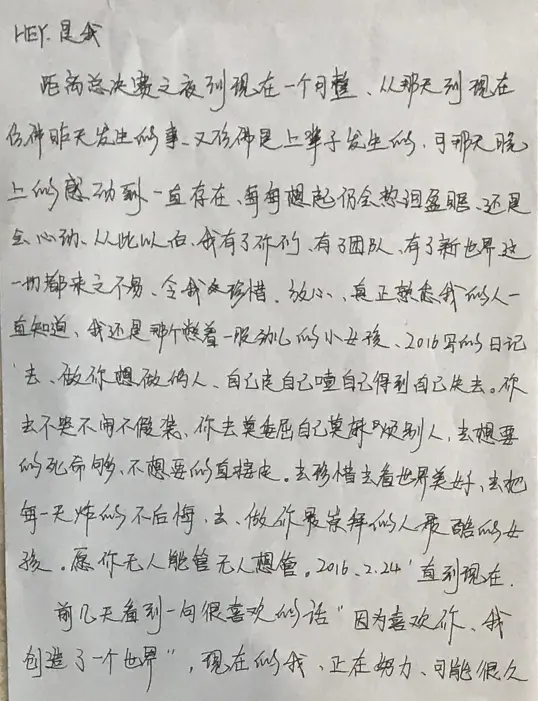 HEY. 是我
距离总决赛之夜到现在一个月整、从那天到现在
仿佛昨天发生的事、又仿佛是上辈子发生的、可那天晚
上的感动到一直存在、每每想起仍会热泪盈眶、还是
会心动、从此以后、我有了你们、有了团队、有了新世界这
一切都来之不易、令我珍惜.放心、真正熟悉我的人一
直知道、我还是那个憋着一股劲儿的小女孩、2016写的日记
"去、做你想做的人、自己走自己喳自己得到自己失去。你
去不哭不闹不假装、你去莫委屈自己莫麻烦别人、去想要
的死命够、不想要的直接走。去珍惜去看世界美好、去把
每一天炸的不后悔、去、做你最崇拜的人最酷的女
孩。愿你无人能管无人想管。2016.2.24' 直到现在.
前几天看到一句很喜欢的话"因为喜欢你、我
创造了一个世界", 现在的我、正在努力、可能很久